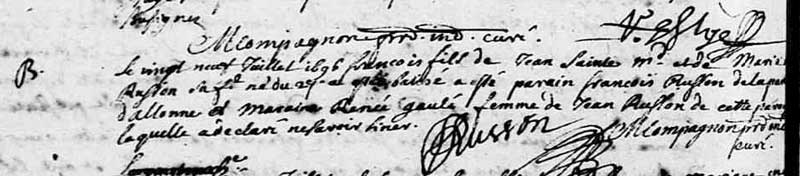 soussignes
M Compagnon prd. ind. curé.
B.
Le vingt neuf Juillet 1696 francois fils de Jean Sainte md. et de Marie
Russon sa fe. né du 25e. a esté batisé a esté parain francois Russon de la par
d'allonne et Maraine Renée gaulé femme de Jean Russon de cette parr
laquelle a declaré ne scavoir siner.
Russon
M Compagnon prd ind
curé.